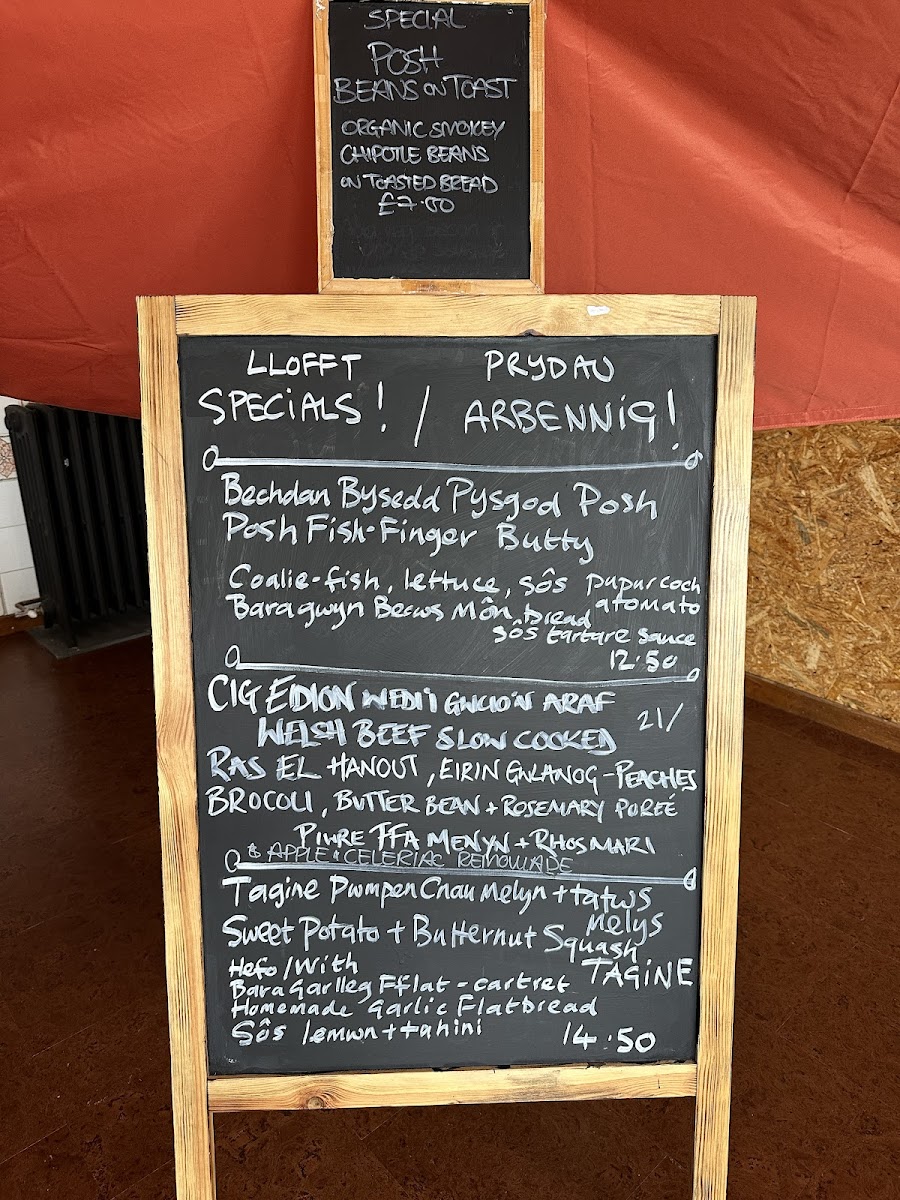 SPECIAL
POSH
BEANS ON TOAST
ORGANIC SMOKEY
CHIPOTLE BEANS
ON TOASTED BREAD
£7.00
LLOFFT PRYDAU
SPECIALS! / ARBENNIG!
Bechdan Bysedd Pysgod Posh
Posh Fish-Finger Butty
Coalie-fish, lettuce, sôs pupur coch
Bara gwyn Becws Môn bread atomato
sôs tartare sauce
12.50
CIG EIDION WEDI'I GWCIO'N ARAF
WELSH BEEF SLOW COOKED 21/
RAS EL HANOUT, EIRIN GWLANOG - PEACHES
BROCOLI, BUTTER BEAN + ROSEMARY PUREÉ
PIWRE FFA MENYN + RHOSMARI
& APPLE & CELERIAC REMOULADE
Tagine Pwmpen Cnau Melyn + tatws
Melys
Sweet Potato + Butternut Squash
TAGINE
Hefo / With
Bara Garlleg Fflat - cartref
Homemade Garlic Flatbread
Sôs lemwn + tahini 14.50